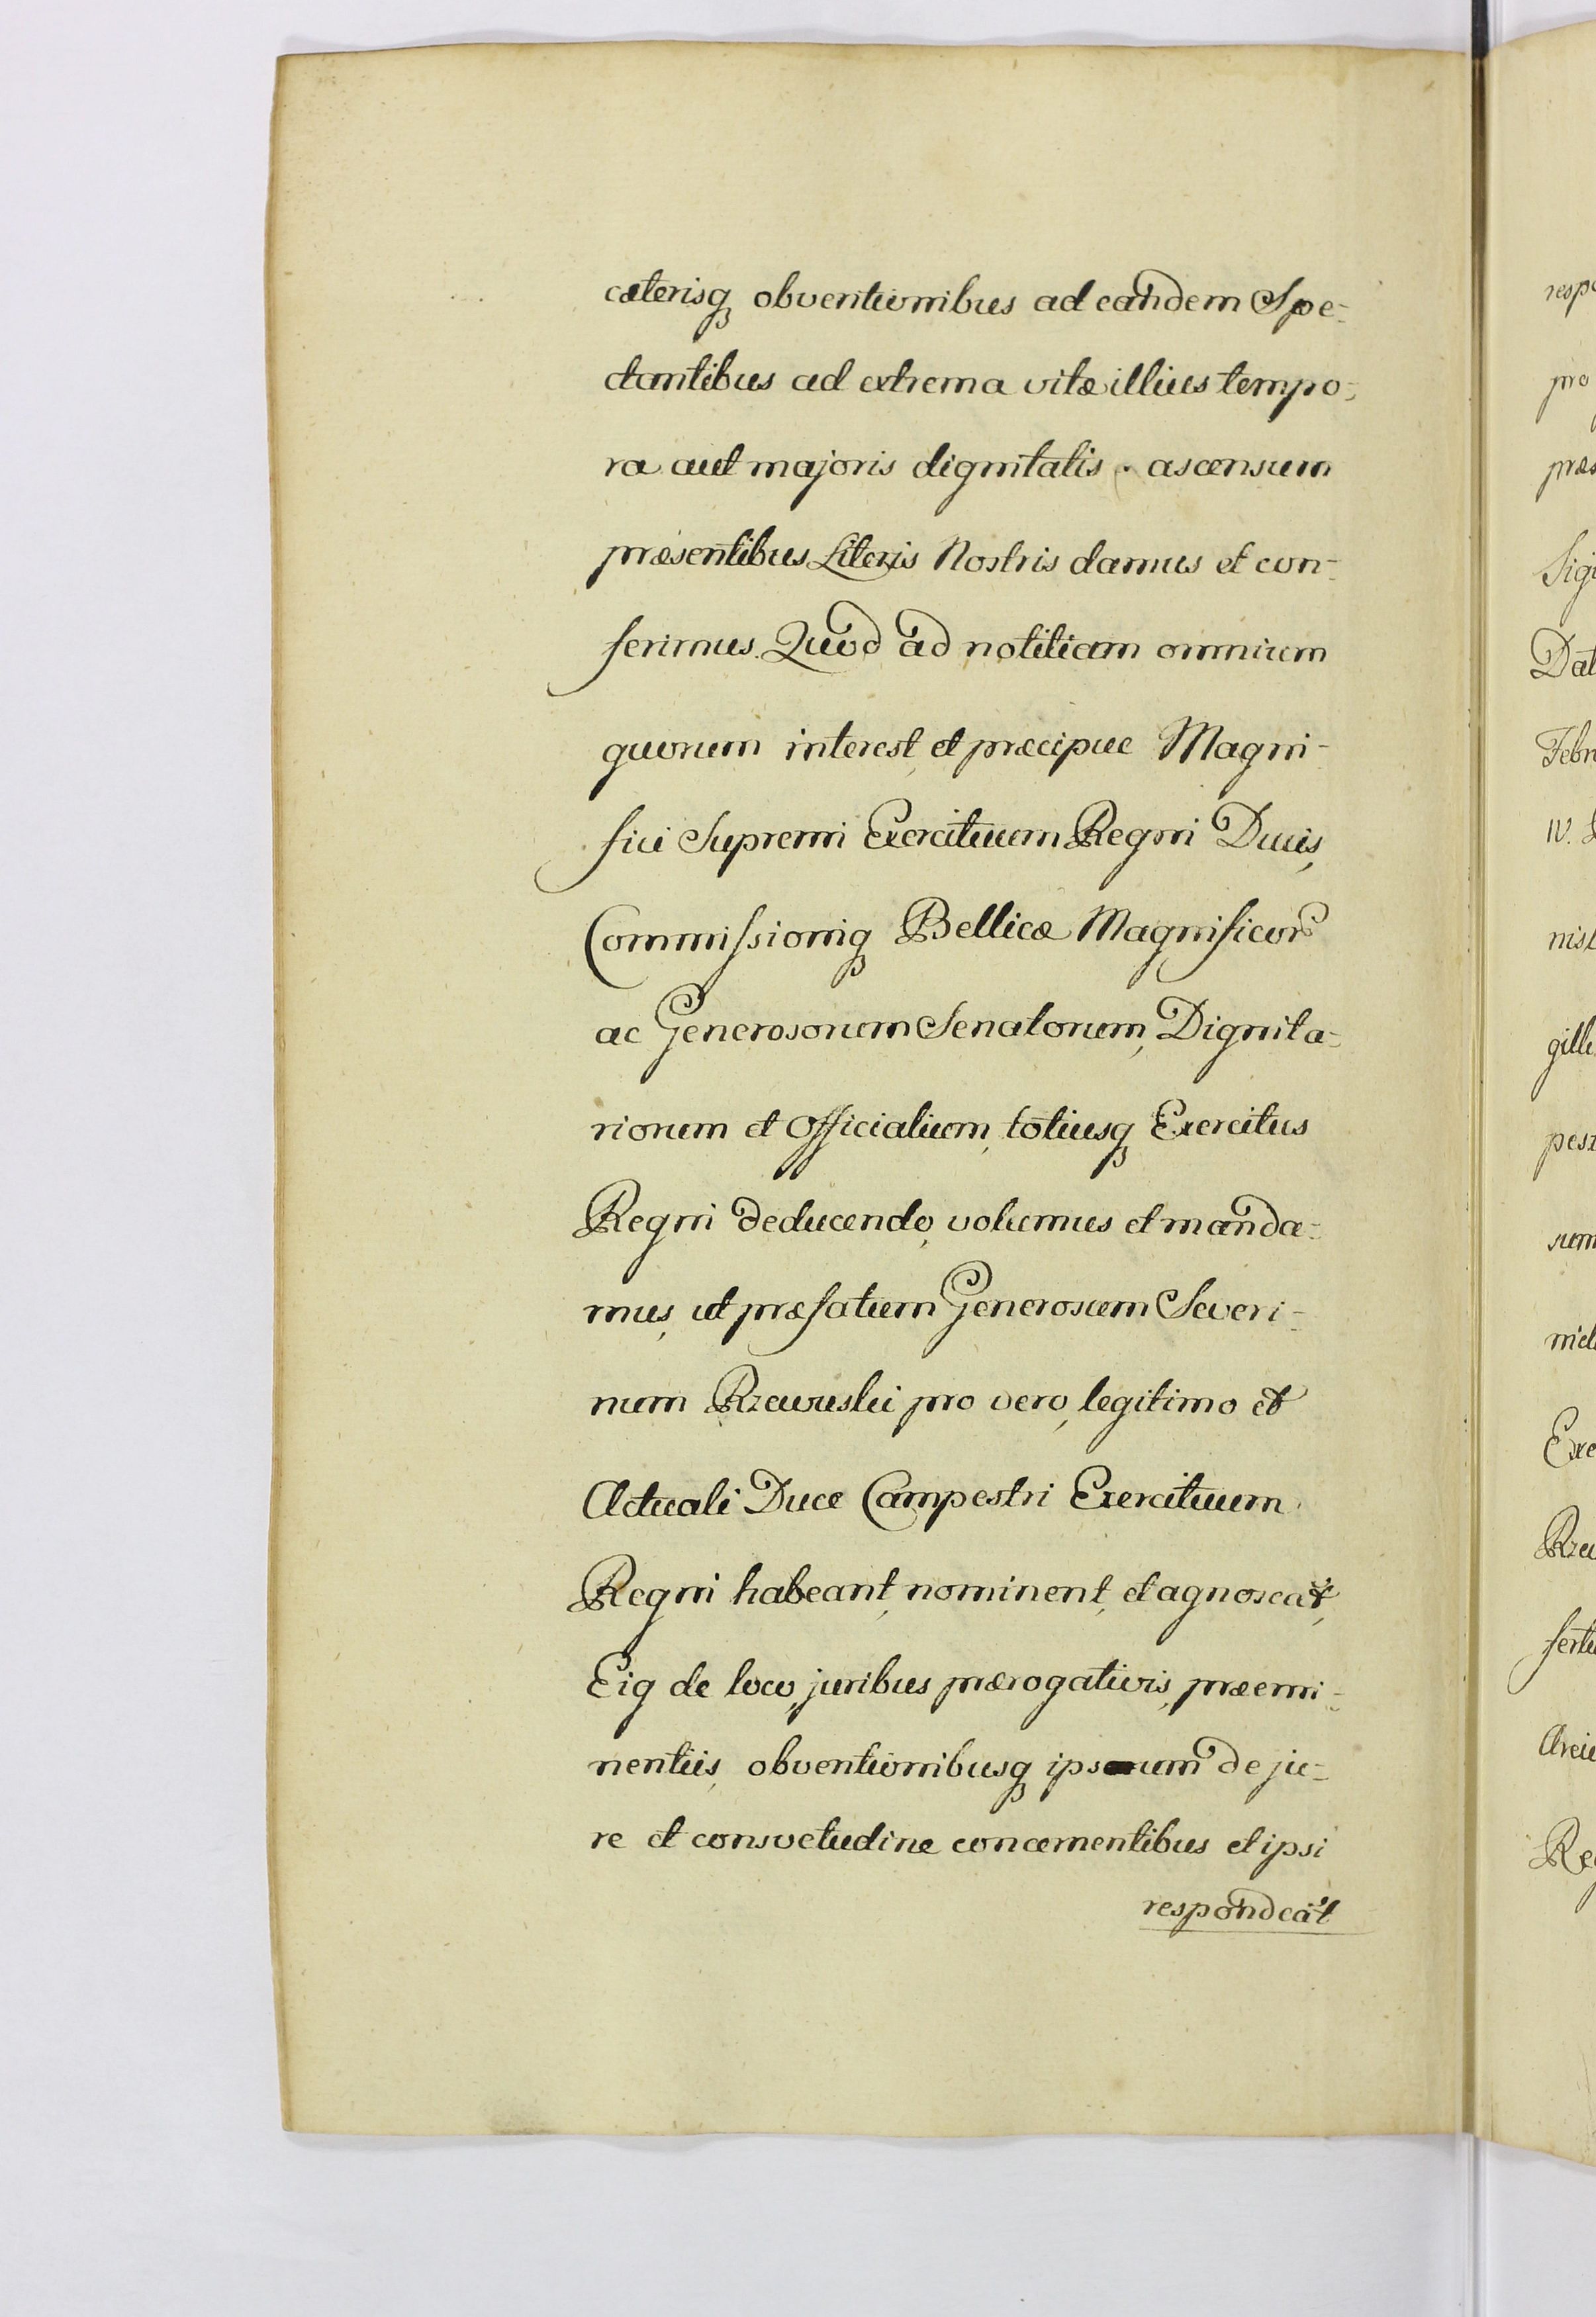 cæterisq obventionibus ad eandem Spe-
ctantibus ad extrema vitæ illius tempo-
ra aut majoris dignitatis ascensum
præsentibus Literis Nostris damus et con-
ferimus. Quod ad notitiam omnium
quorum interest, et præcipue Magni-
fici Supremi Exercituum Regni Ducis,
Commissioniq Bellicæ Magnificor
ac Generosorum Senatorum, Dignita-
riorum et Officialium, totiusq Exercitus
Regni deducendo, volumus et manda-
mus, ut præfatum Generosum Severi-
num Rzewuski pro vero, legitimo et
Actuali Duce Campestri Exercituum
Regni habeant, nominent, et agnoscat,
Eiq de loco, juribus prærogativis, præemi-
nentiis, obventionibusq ipsum de ju-
re et consvetudine concernentibus et ipsi
respondeat
respo
pro
præs
Sigi
Dat
Febr
IV.
nist
gill
pest
sum
Exe
Rze
Re